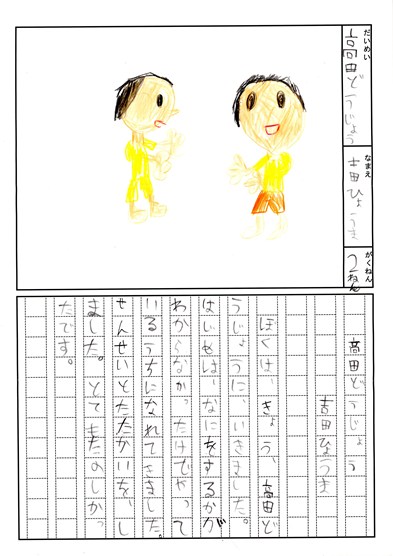 だいめい
高田どうじょう
なまえ
吉田ひょうま
がくねん
2ねん
高田どうじょう
吉田ひょうま
ぼくは、きょう、高田ど
うじょうに、いきました。
はじめは、なにをするかが
わからなかったけどやって
いるうちになれてきました。
せんせいとたたかいを、し
ました。とてもたのしかっ
たです。